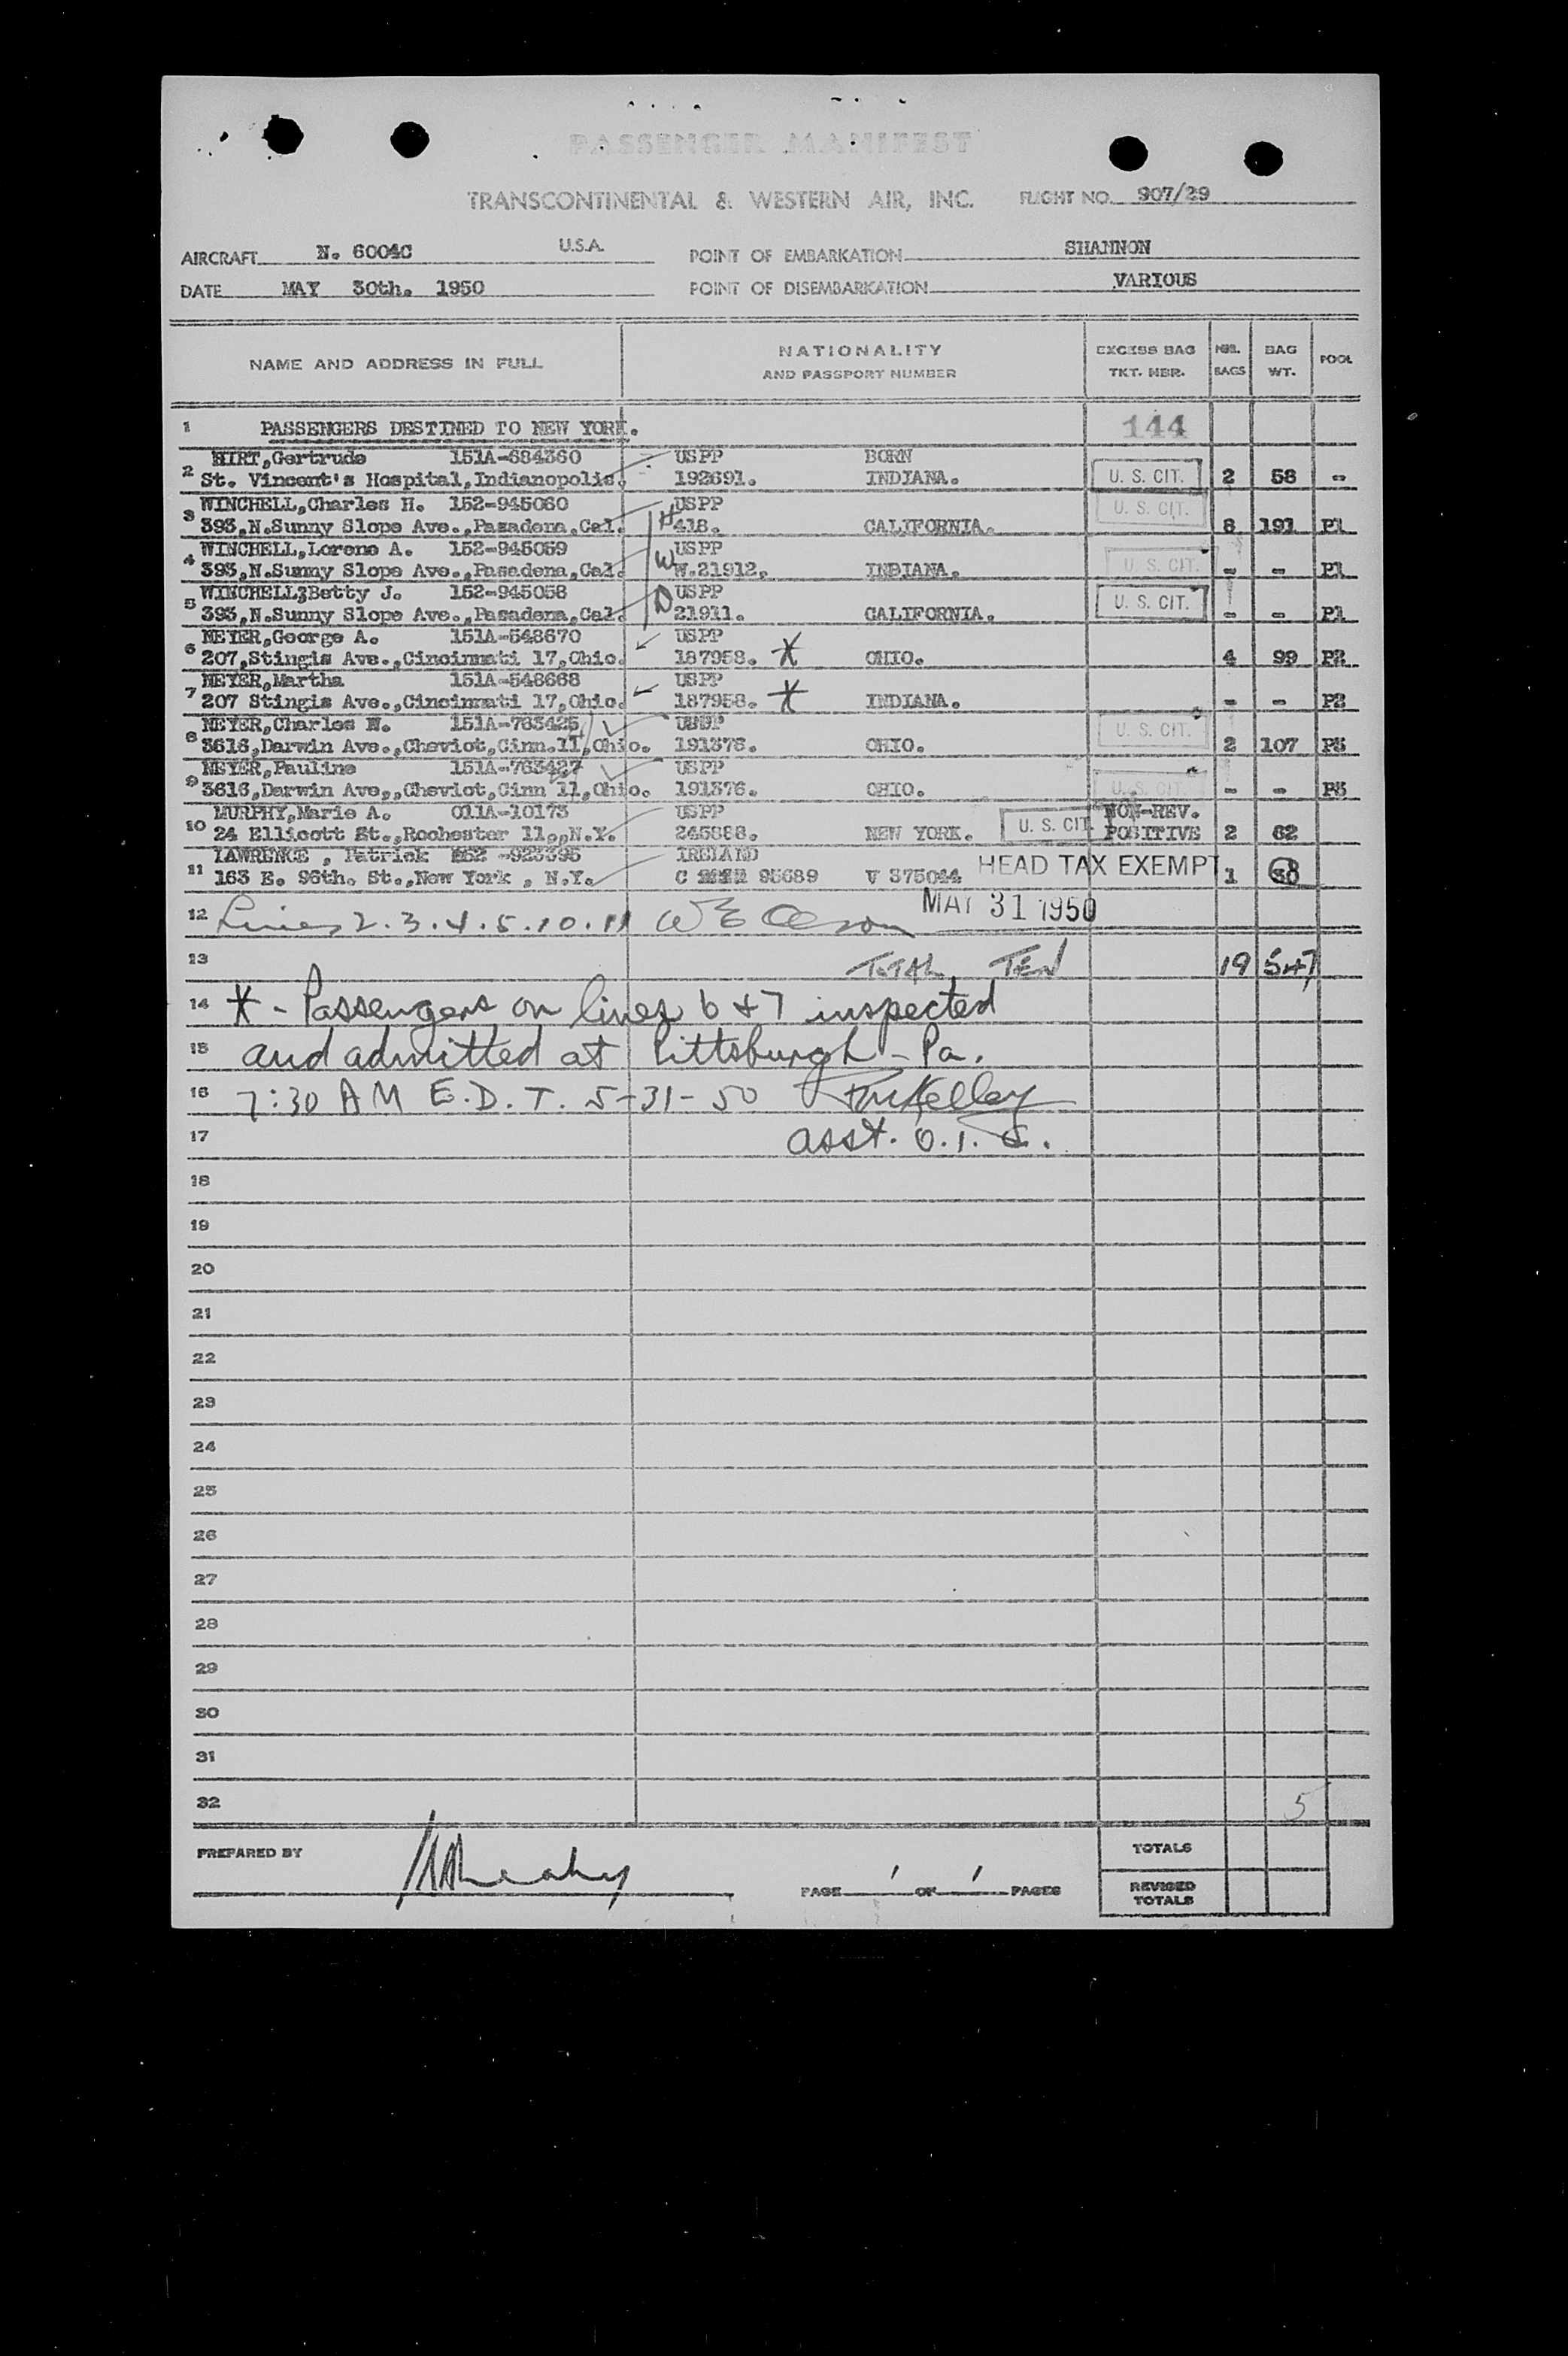 PASSENGER MANIFEST
TRANSCONTINENTAL & WESTERN AIR, INC. FLIGHT NO. 907/29
AIRCRAFT N. 6004C U.S.A. POINT OF EMBARKATION SHANNON
DATE MAY 30th. 1950 POINT OF DISEMBARKATION VARIOUS
NAME AND ADDRESS IN FULL NATIONALITY AND PASSPORT NUMBER EXCESS BAG TKT. NBR. NBR. BAGS BAG WT. POOL
1 PASSENGERS DESTINED TO NEW YORK. 144
HIRT,Gertrude 151A-684360 USPP BORN
2 St. Vincent's Hospital,Indianopolis. 192691. INDIANA. U. S. CIT. 2 58 -
WINCHELL,Charles H. 152-945060 USPP U. S. CIT.
3 393,N.Sunny Slope Ave.,Pasadena,Cal. H 418. CALIFORNIA. 8 191 P1
WINCHELL,Lorene A. 152-945059 USPP
4 393,N.Sunny Slope Ave.,Pasadena,Cal. W W.21912. INDIANA. U. S. CIT. - - P1
WINCHELL,Betty J. 152-945058 USPP
5 393,N.Sunny Slope Ave.,Pasadena,Cal. D 21911. CALIFORNIA. U. S. CIT. - - P1
MEYER,George A. 151A-548670 USPP
6 207,Stingis Ave.,Cincinnati 17,Ohio. 187958. * OHIO. 4 99 P2
MEYER,Martha 151A-548668 USPP
7 207 Stingis Ave.,Cincinnati 17,Ohio. 187958. * INDIANA. - - P2
MEYER,Charles N. 151A-763425
8 3616,Darwin Ave.,Cheviot,Cinn.11,Ohio. 191376. OHIO. U. S. CIT. 2 107 P3
MEYER,Pauline 151A-763427 USPP
9 3616,Darwin Ave,,Cheviot,Cinn 11,Ohio. 191376. OHIO. U. S. CIT. - - P3
MURPHY,Marie A. 011A-10173 USPP NON-REV.
10 24 Ellicott St.,Rochester N.Y. 245888. NEW YORK. U. S. CIT. POSITIVE 2 62
LAWRENCE , Patrick -923395 IRELAND
11 163 E. 96th. St.,New York , N.Y. C 95689 V 375044 HEAD TAX EXEMPT 1 30
12 Lines 2.3.4.5.10.11 W E Olson MAY 31 1950
13 TOTAL TEN 19 547
14 * - Passengers on lines 6 & 7 inspected
15 and admitted at Pittsburgh - Pa.
16 7:30 AM E.D.T. 5-31-50 Kelley
17 asst. O.I.C.
18
19
20
21
22
23
24
25
26
27
28
29
30
31
32 5
PREPARED BY PAGE 1 OF 1 PAGES TOTALS
REVISED TOTALS